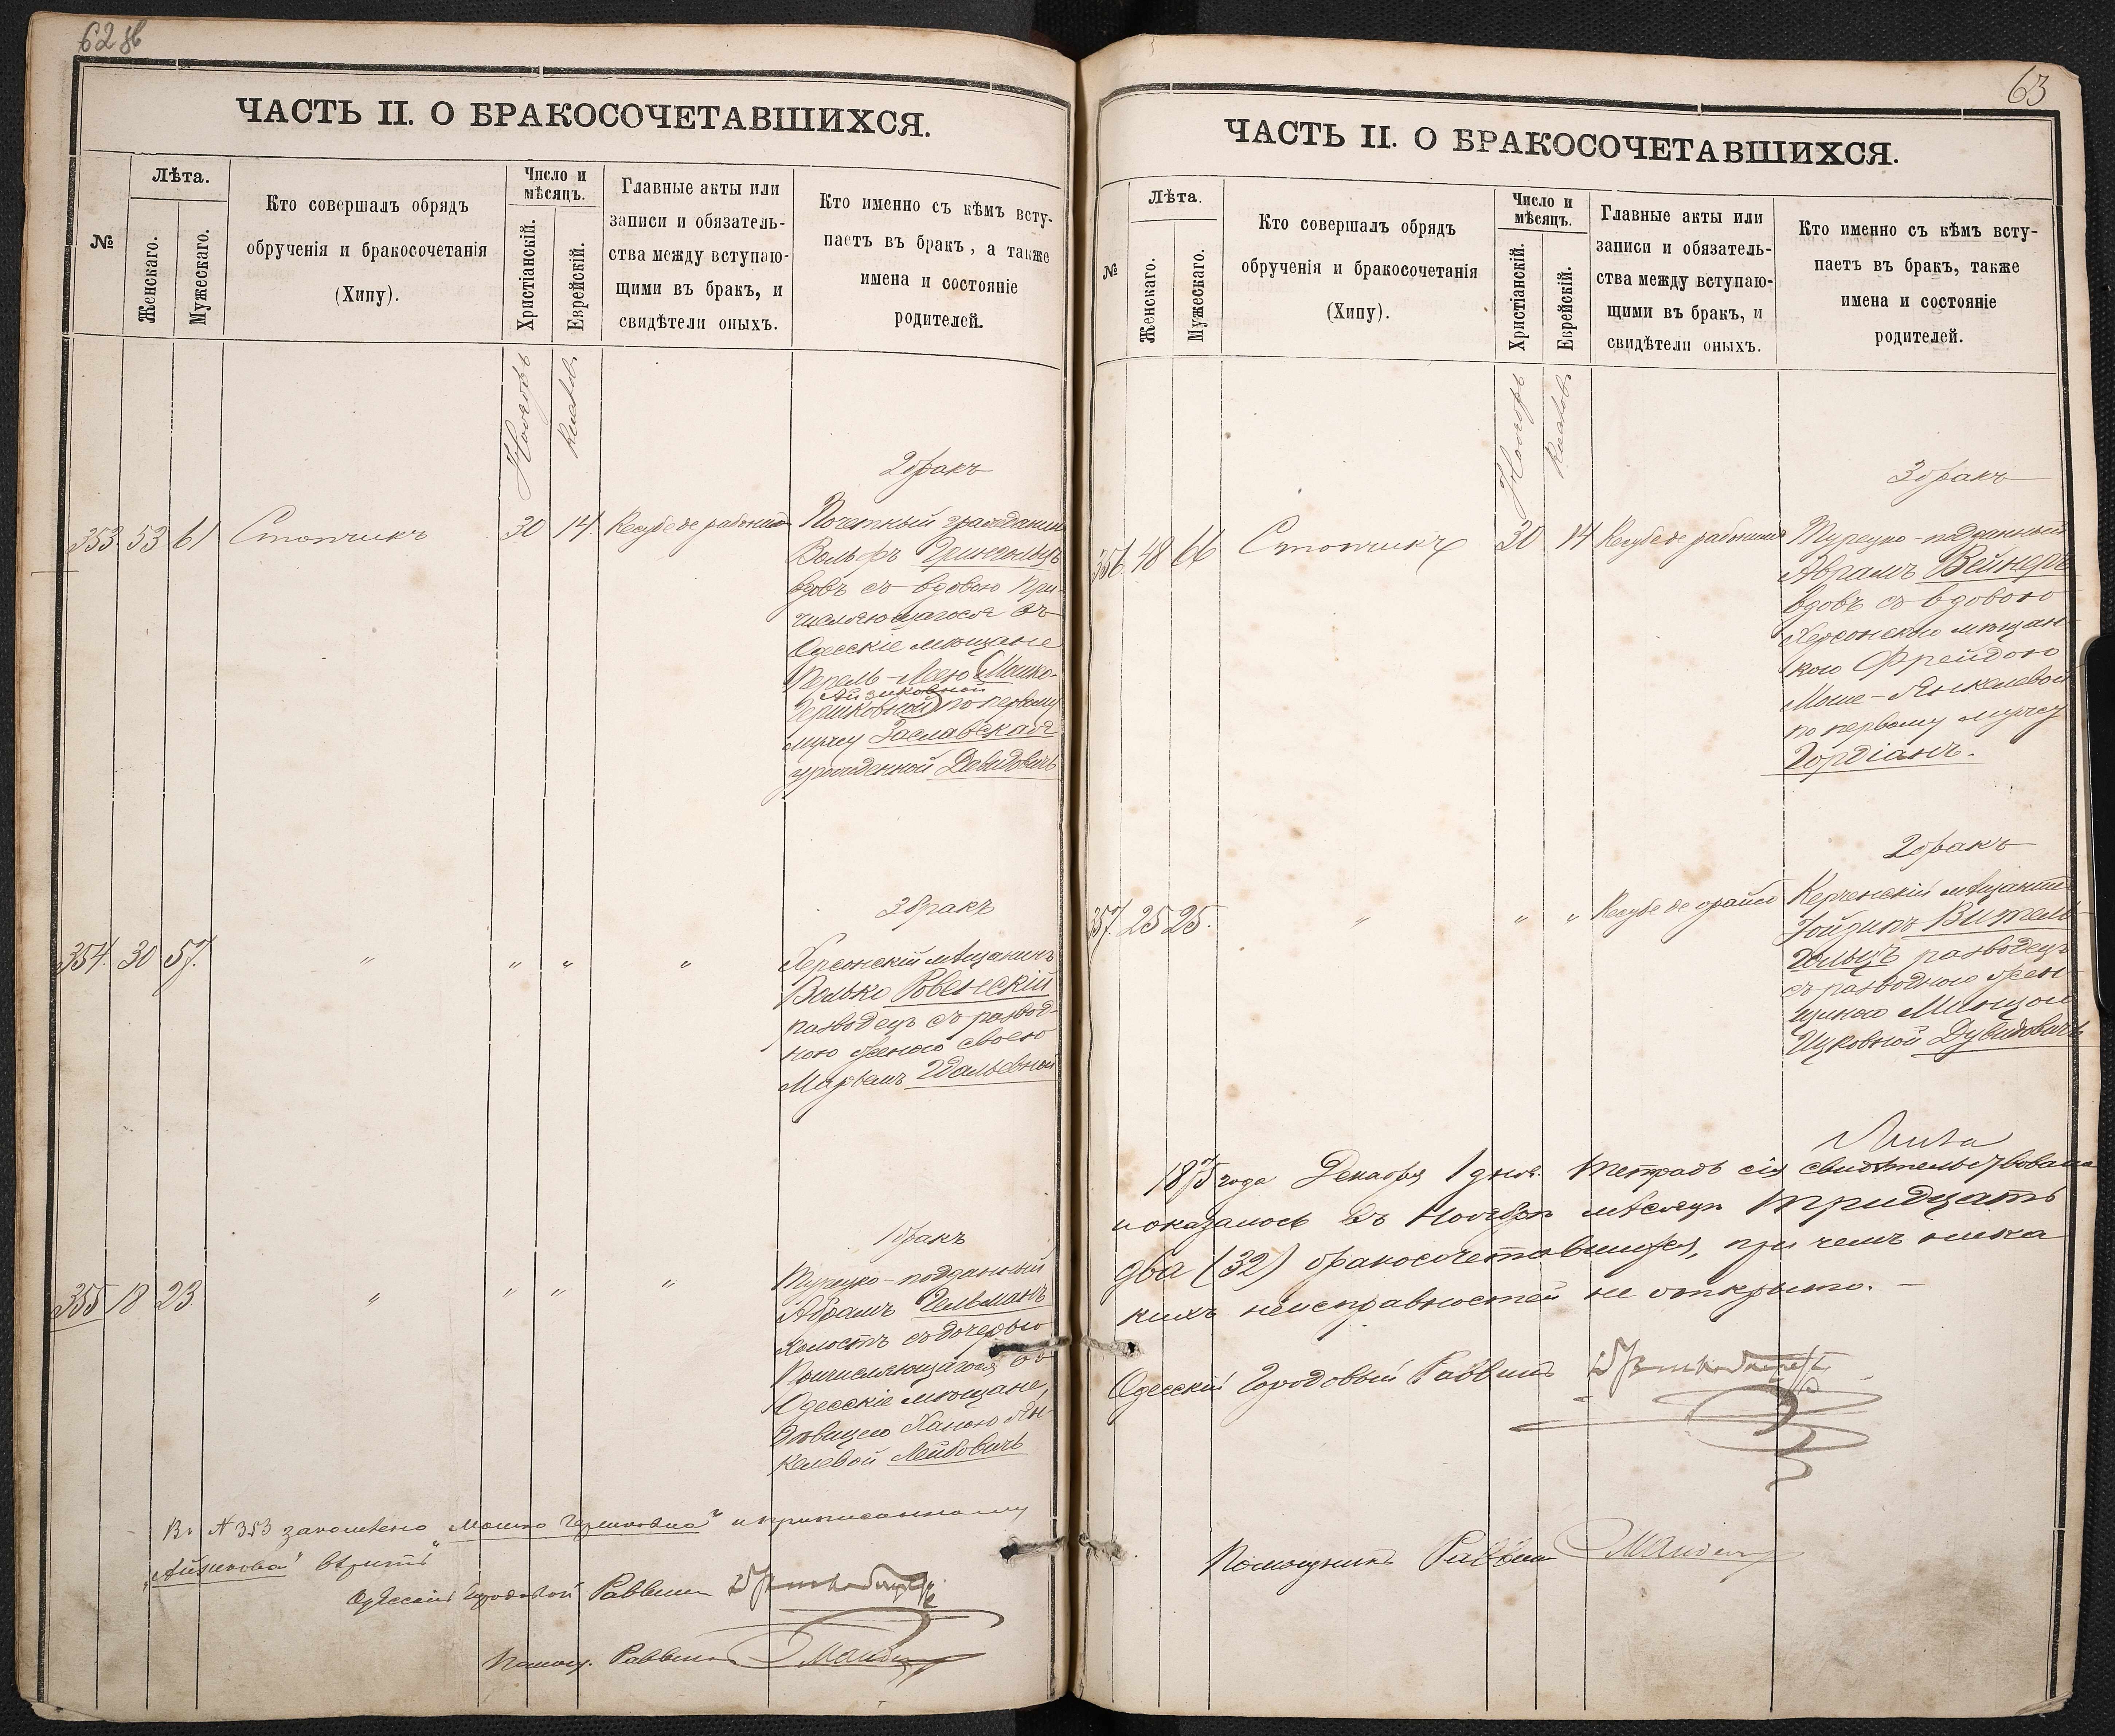 62 об
ЧАСТЬ II. О БРАКОСОЧЕТАВШИХСЯ.
№
Лѣта.
Женскаго.
Мужескаго.
Кто совершалъ обрядъ
обрученія и бракосочетанія
(Хипу).
Число и
мѣсяцъ.
Христіанскій.
Еврейскій.
Главные акты или
записи и обязатель-
ства между вступаю-
щими въ бракъ, и
свидѣтели оныхъ.
Кто именно съ кѣмъ всту-
паетъ въ бракъ, а также
имена и состояніе
родителей.
Ноябрь
Кислев.
2 бракъ
353. 53 61 Стопчикъ 30 14. Почетный гражданинъ
Вольфъ
вдовъ съ вдовою при-
числяющагося въ
Одесскіе мѣщане
Перель-Леею Мошко-
Айзиковной
Гершковной по первому
мужу Заславская
урожденной Давидовичъ
3 бракъ
354. 30 57. " " " " Херсонскій мѣщанинъ
Волько Ровенскій
разводецъ съ развод-
ною женою своею
Марьемъ
1 бракъ
355 18 23. " " " " Турецко-подданный
Абрамъ Гельманъ
холостъ съ дочерью
Причисляющагося въ
Одесскіе мѣщане,
дѣвицею Ханою Ян-
келевой Лейбовичъ
Въ № 353 "Мошко Гершковна" и приписанному
"Айзикова" вѣрить
Одесскій Городовой Раввинъ
Помощ. Раввина
63
ЧАСТЬ II. О БРАКОСОЧЕТАВШИХСЯ.
№
Лѣта.
Женскаго.
Мужескаго.
Кто совершалъ обрядъ
обрученія и бракосочетанія
(Хипу).
Число и
мѣсяцъ.
Христіанскій.
Еврейскій.
Главные акты или
записи и обязатель-
ства между вступаю-
щими въ бракъ, и
свидѣтели оныхъ.
Кто именно съ кѣмъ всту-
паетъ въ бракъ, также
имена и состояніе
родителей.
Ноябрь
Кислев.
3 бракъ
356. 48 66 Стопчикъ 30 14 Турецко-подданный
Абрамъ Вейнеръ
вдовъ съ вдовою
Херсонскою мѣщан-
кою Фрейдою
Моше-Янкелевой
по первому мужу
Гордіанъ.
2 бракъ
357. 25 25. " " " Керченскій мѣщанинъ
разводецъ
съ разводною жен-
щиною
Ицковной Дувидовичъ
1875 года Декабря 1 дня. Тетрадь сія свидѣтельствована
и оказалось въ Ноябрѣ мѣсяцѣ тридцать
два (32) бракосочетавшихся, при чемъ ника
кихъ неисправностей не открыто. —
Одесскій Городовый Раввинъ
Помощникъ Раввина